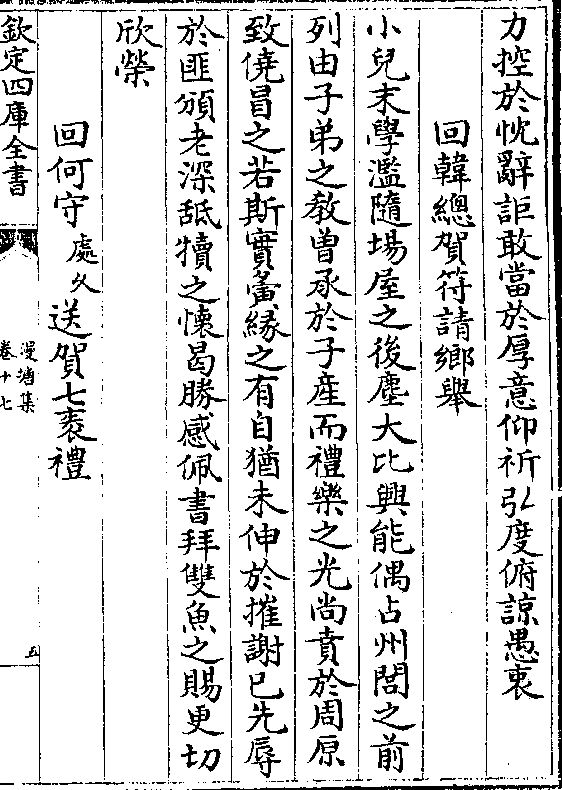 力控於忱辭詎敢當於厚意仰祈弘度俯諒愚衷
回韓總賀符請鄉舉
小兒末學濫隨場屋之後塵大比興能偶占州閭之前
列由子弟之教曽承於子産而禮樂之光尚賁於周原
致僥冒之若斯實夤縁之有自猶未伸於摧謝已先辱
於匪頒老深舐犢之懷曷勝感佩書拜雙魚之賜更切
欣榮
回何守處久送賀七袠禮
欽定四庫全書
漫塘集
卷十七
五